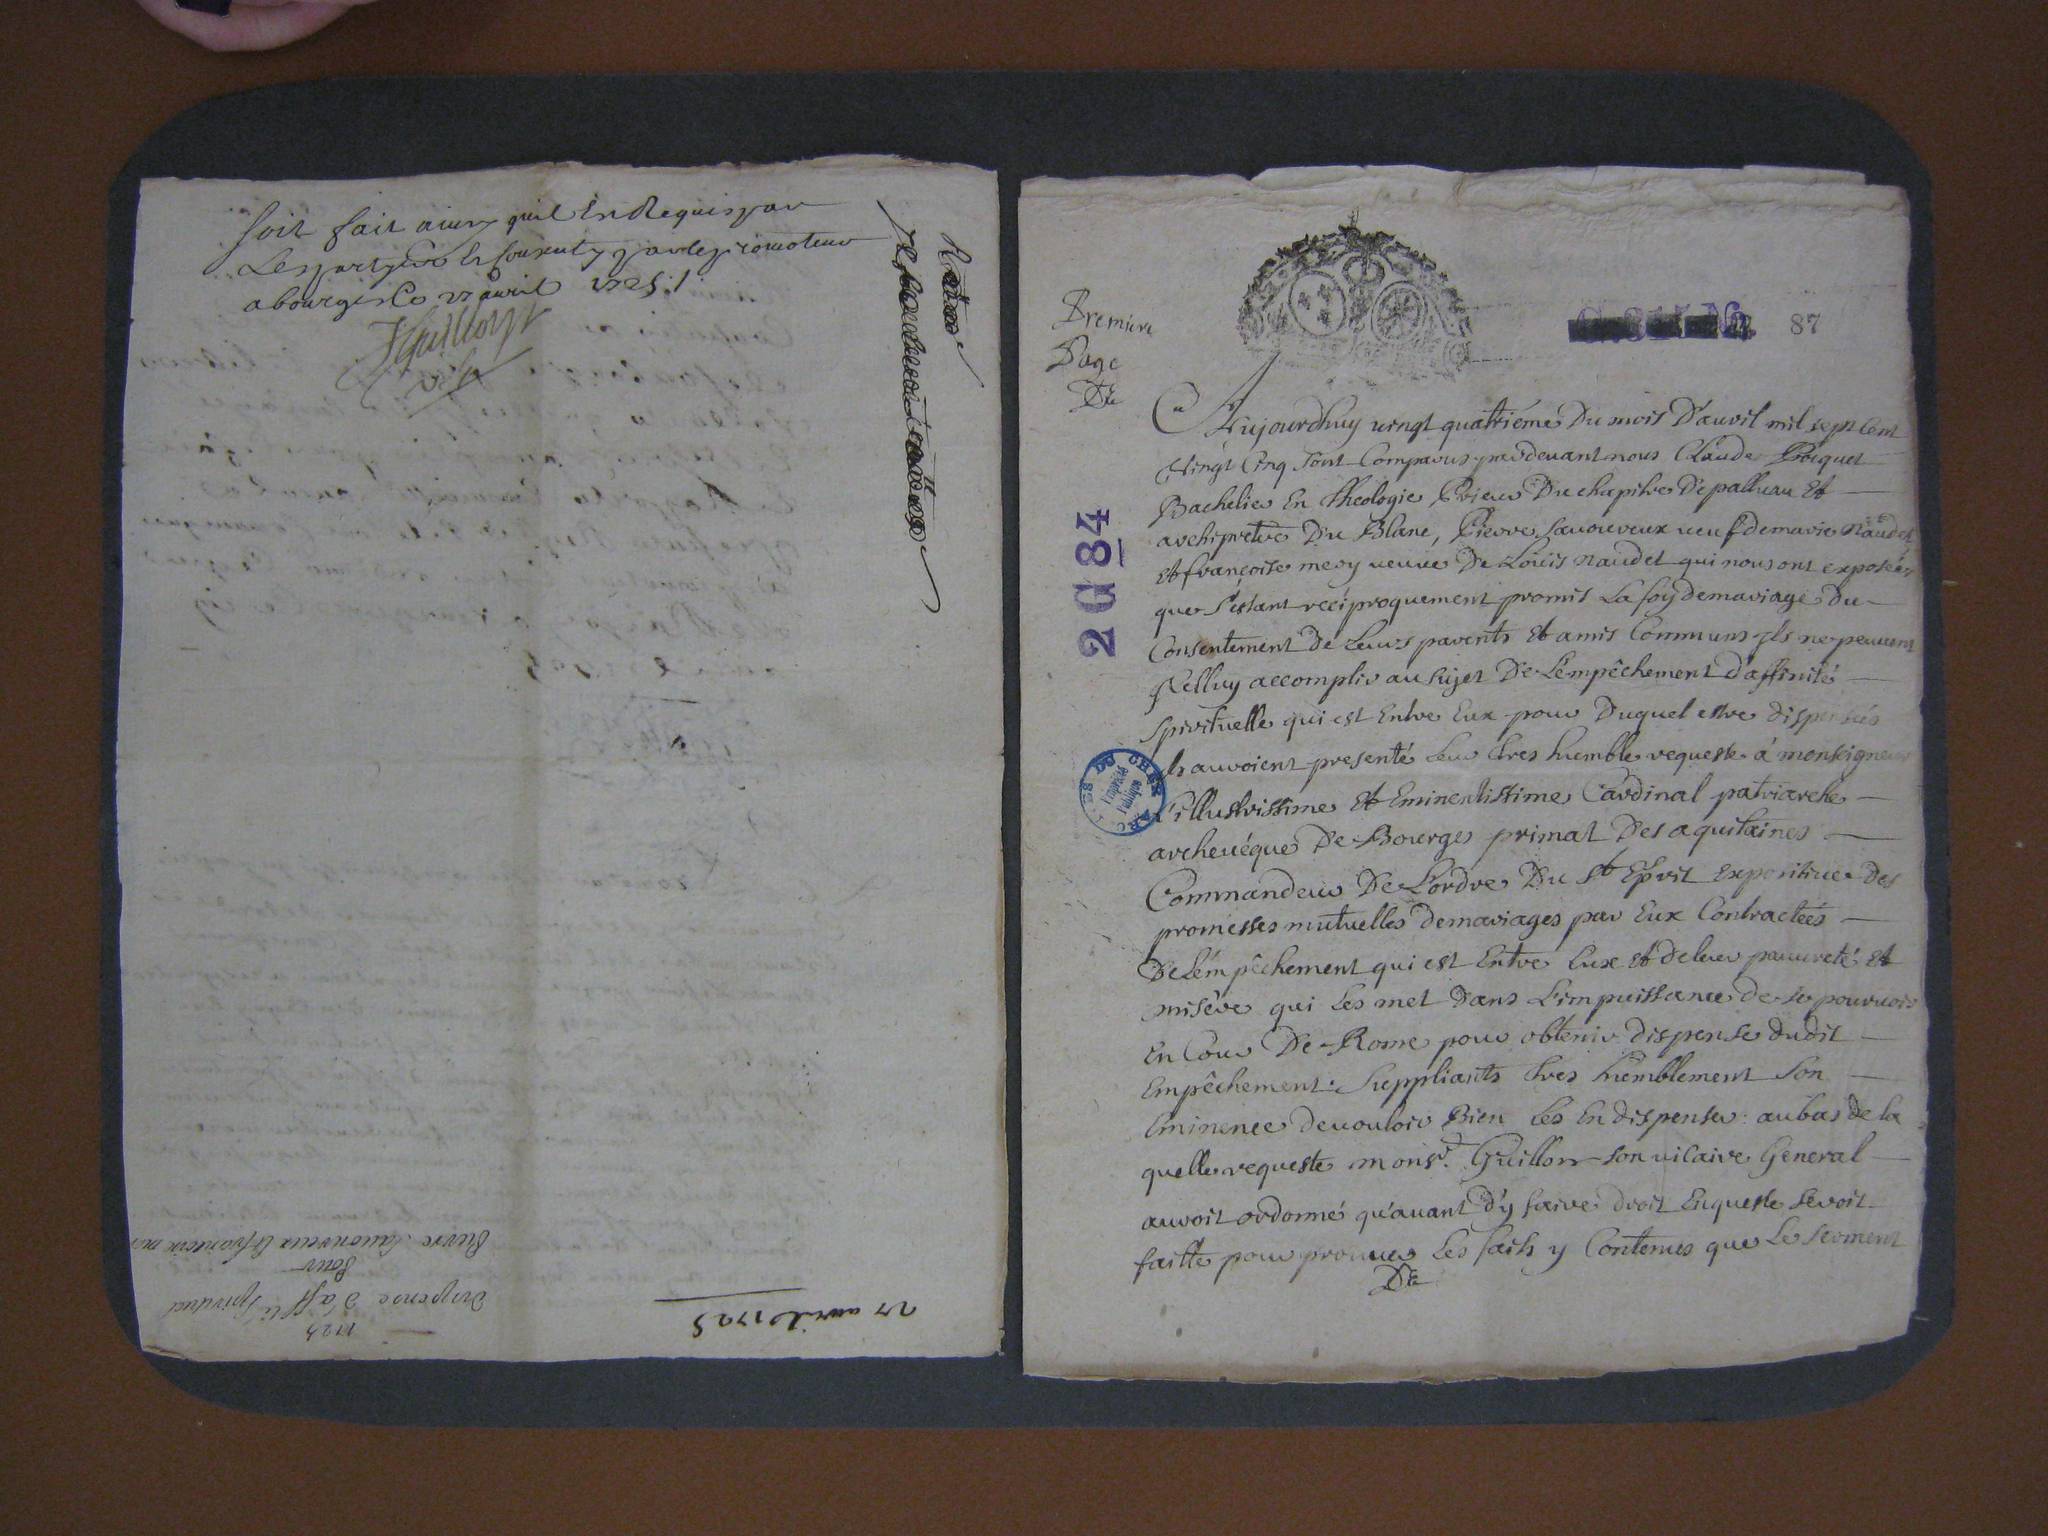 Soit fait ainsy quil Est Requis par
Les partyes et consenty par le promoteur
a bourges Ce 27 avril 1725 ./.
JGuillon
v. g.
27 avril 1725
1725
Dispense d'aff.té Spirituel
Pour
Pierre Sauoureux Et francoise mery
Premiere
Page
De
C. 87
2 G 84
ARCHIVES DU CHER
Propriété
Publique
Aujourdhuy uingt quatriéme Du mois D'auril mil sept Cent
Vingt Cinq sont Comparus pardeuant nous Claude Pocquet
Bachelier En theologie Prieur Du chapitre De palluau Et
archiprêtre Du Blanc, Pierre Sauoureux ueuf de marie Naudet
Et françoise mery ueuue De Loüis Naudet qui nous ont exposéz
que s'éstant reciproquement promis La foy de mariage Du
Consentement De Leurs parents Et amis Communs jls ne peuuent
Jcelluy accomplir au sujet De L'empêchement d'affinité
Spirituelle qui est Entre Eux pour Duquel estre dispensés
jls auroient presenté leur tres humble requeste á monseigneur
L'illustrissime Et Eminentissime Cardinal patriarche
archeuéque De Bourges primat Des aquitaines
Commandeur De L'ordre Du St Esprit Expositiue Des
promesses mutuelles de mariages par Eux Contractées
De L'émpêchement qui est Entre Eux Et de leur pauureté Et
misére qui Les met Dans L'impuissance de se pouruoir
En Cour De Rome pour obtenir dispense dudit
Empêchement. Suppliants tres humblement Son
Eminence de uouloir Bien Les En dispenser. au bas de la
quelle requeste monsr. Guillon son uicaire General
auroit ordonné qu'auant d'y faire droit Enqueste seroit
faitte pour prouuer Les faits y Contenus que Le serment
De